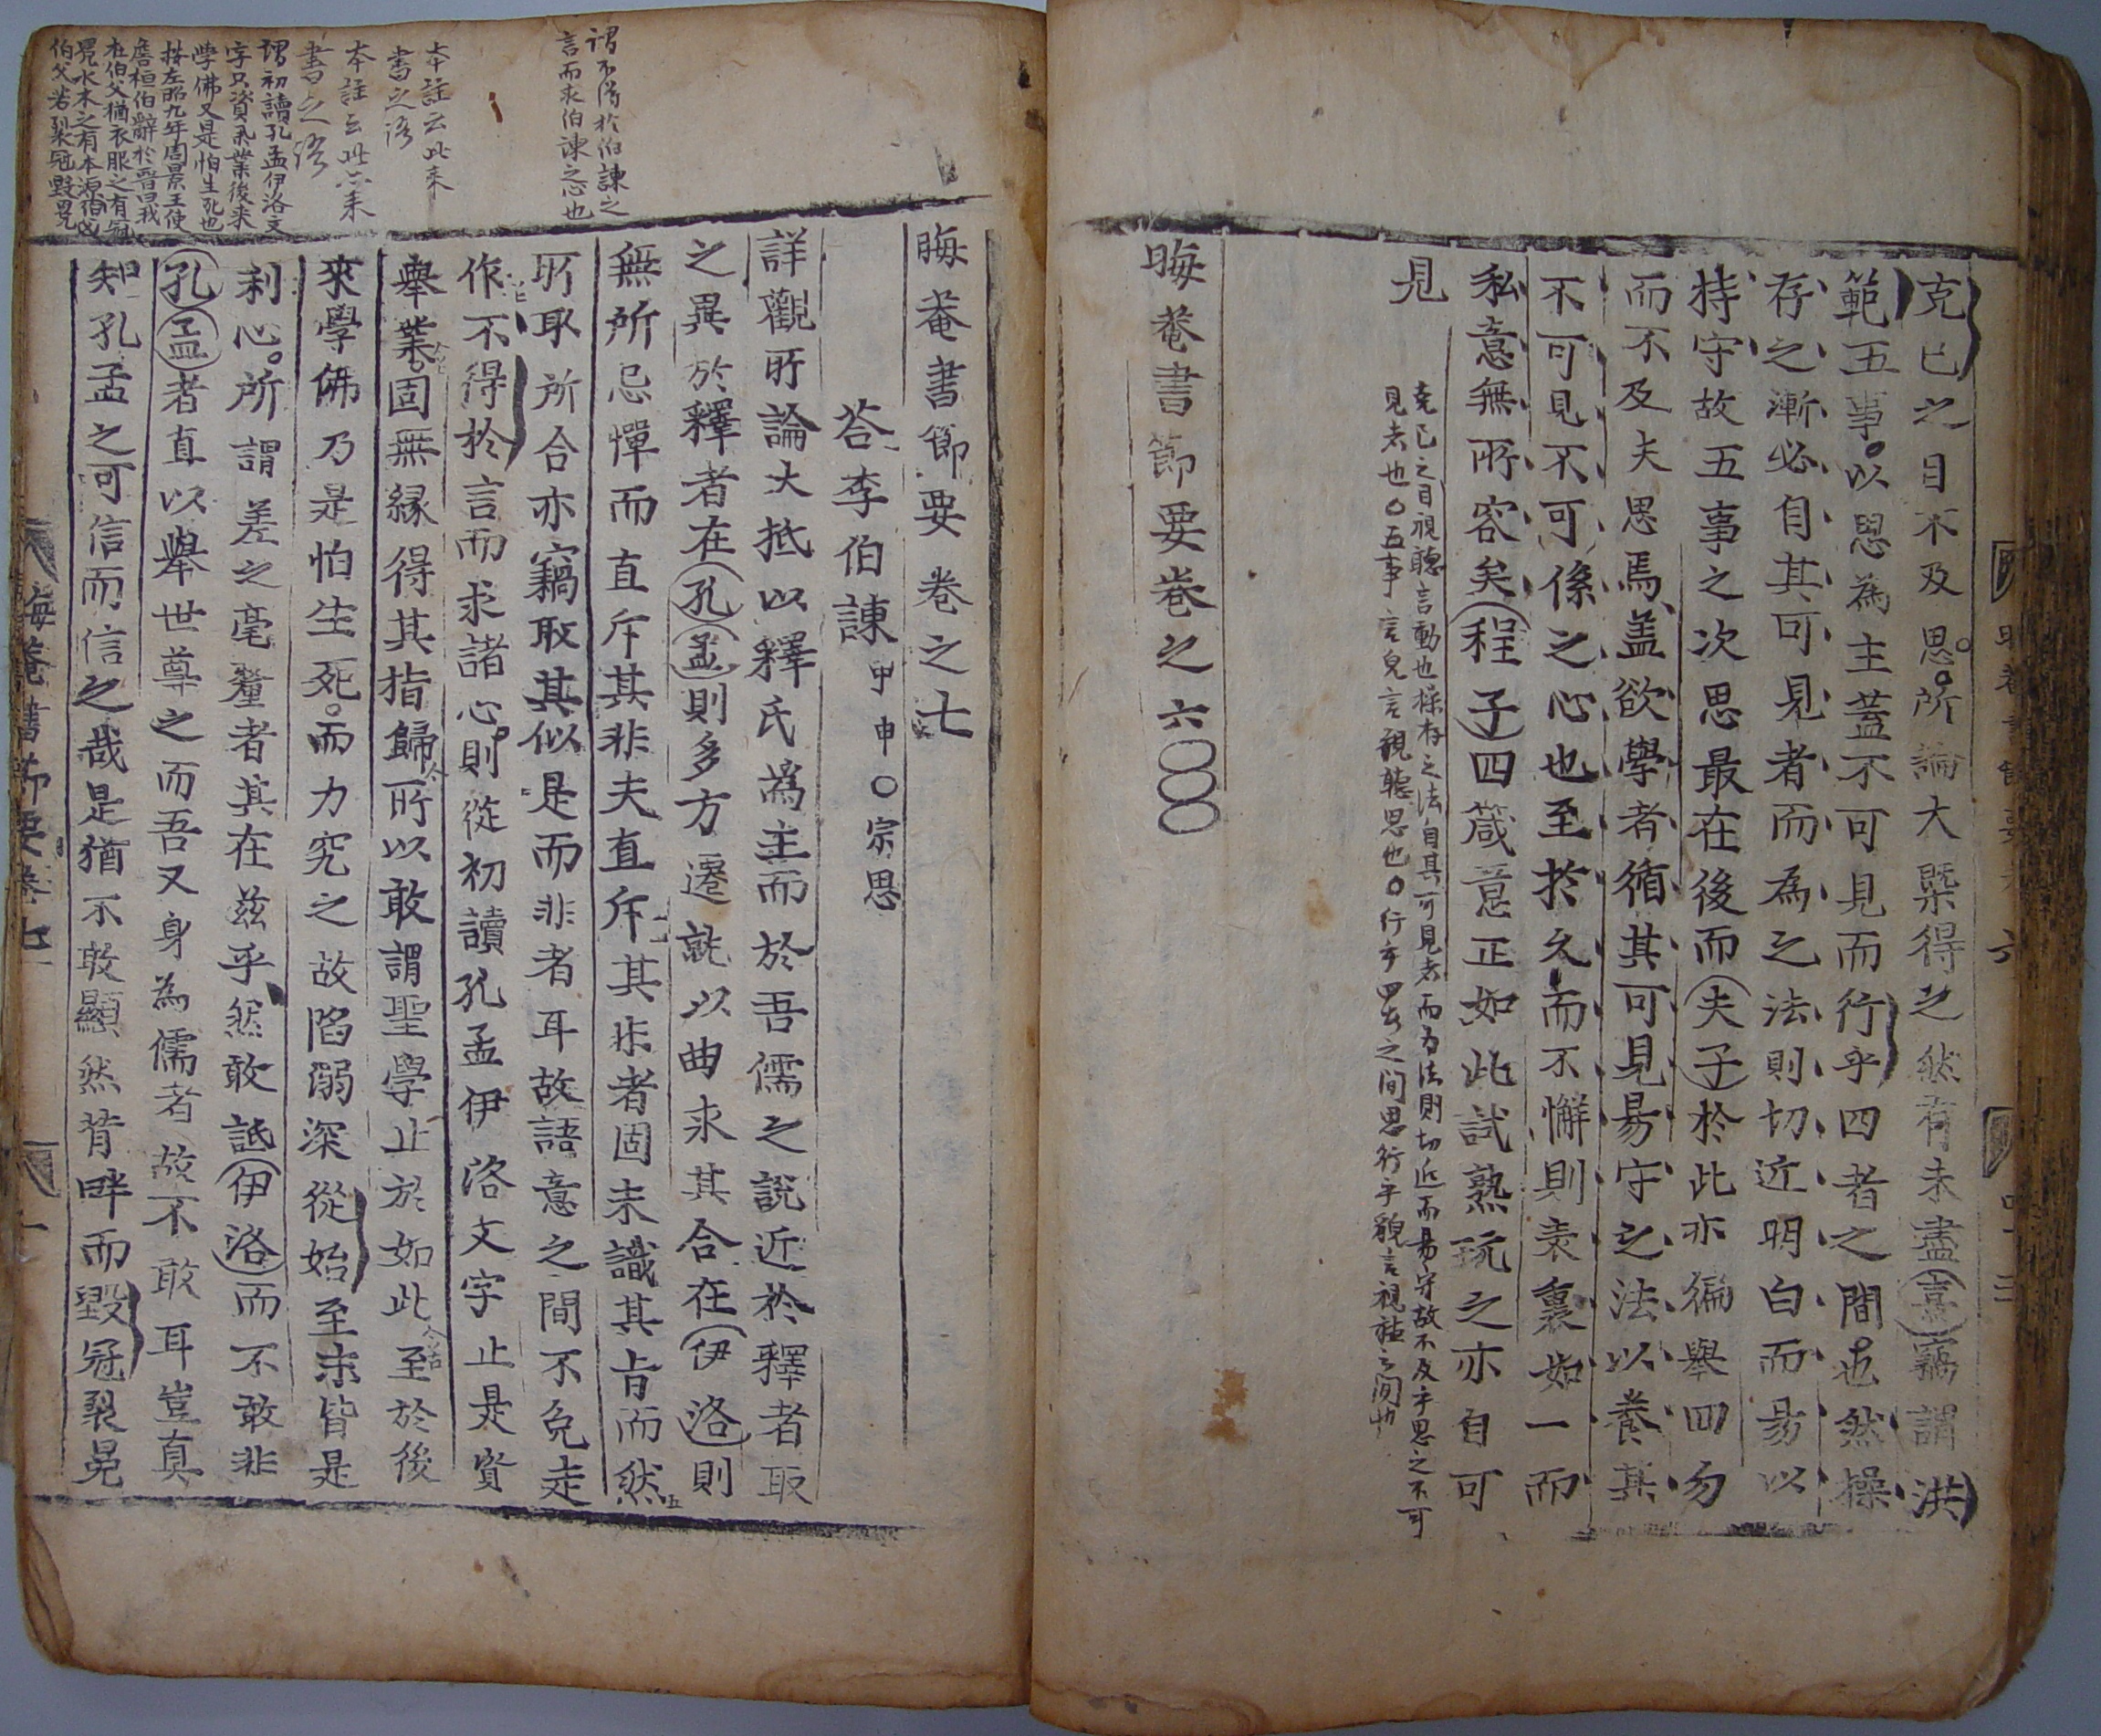 克己之目不及思所論大槩得之然有未盡熹竊謂洪
範五事以思為主蓋不可見而行乎四者之間也然操
存之漸必自其可見者而為之法則切近明白而易以
持守故五事之次思最在後而夫子於此亦徧舉四勿
而不及夫思焉盖欲學者循其可見易守之法以養其
不可見不可係之心也至於久而不懈則表裏如一而
私意無所容矣程子四箴意正如此試熟玩之亦自可
見
克己之目視聽言動也操存之法自其可見者而為法則切近而易守故不及乎思之不可
見者也○五事言皃言視聽思也○行乎四者之間思行乎貌言視聽之間也
晦菴書節要卷之六
晦菴書節要卷之七
答李伯諫甲申○宗思
詳觀所論大抵以釋氏為主而於吾儒之說近於釋者取
之異於釋者在孔孟則多方遷就以曲求其合在伊洛則
無所忌憚而直斥其非夫直斥其非者固未識其旨而然
所取所合亦竊取其似是而非者耳故語意之間不免走
作不得於言而求諸心則從初讀孔孟伊洛文字止是資
舉業固無緣得其指歸所以敢謂聖學止於如此至於後
來學佛乃是怕生死而力究之故陷溺深從始至末皆是
利心所謂差之毫釐者其在茲乎然敢詆伊洛而不敢非
孔孟者直以舉世尊之而吾又身為儒者故不敢耳豈真
知孔孟之可信而信之哉是猶不敢顯然背畔而毀冠裂冕
謂不得於伯諫之
言而求伯諫之心也
本註云此來
書之語
本註云此亦來
書之語
謂初讀孔孟伊洛文
字只資舉業後來
學佛又是怕生死也
按左昭九年周景王使
詹桓伯辭於晉曰我
在伯父猶衣服之有冠
冕水木之有本源伯父
伯父若裂冠毀冕
晦菴書節要卷七